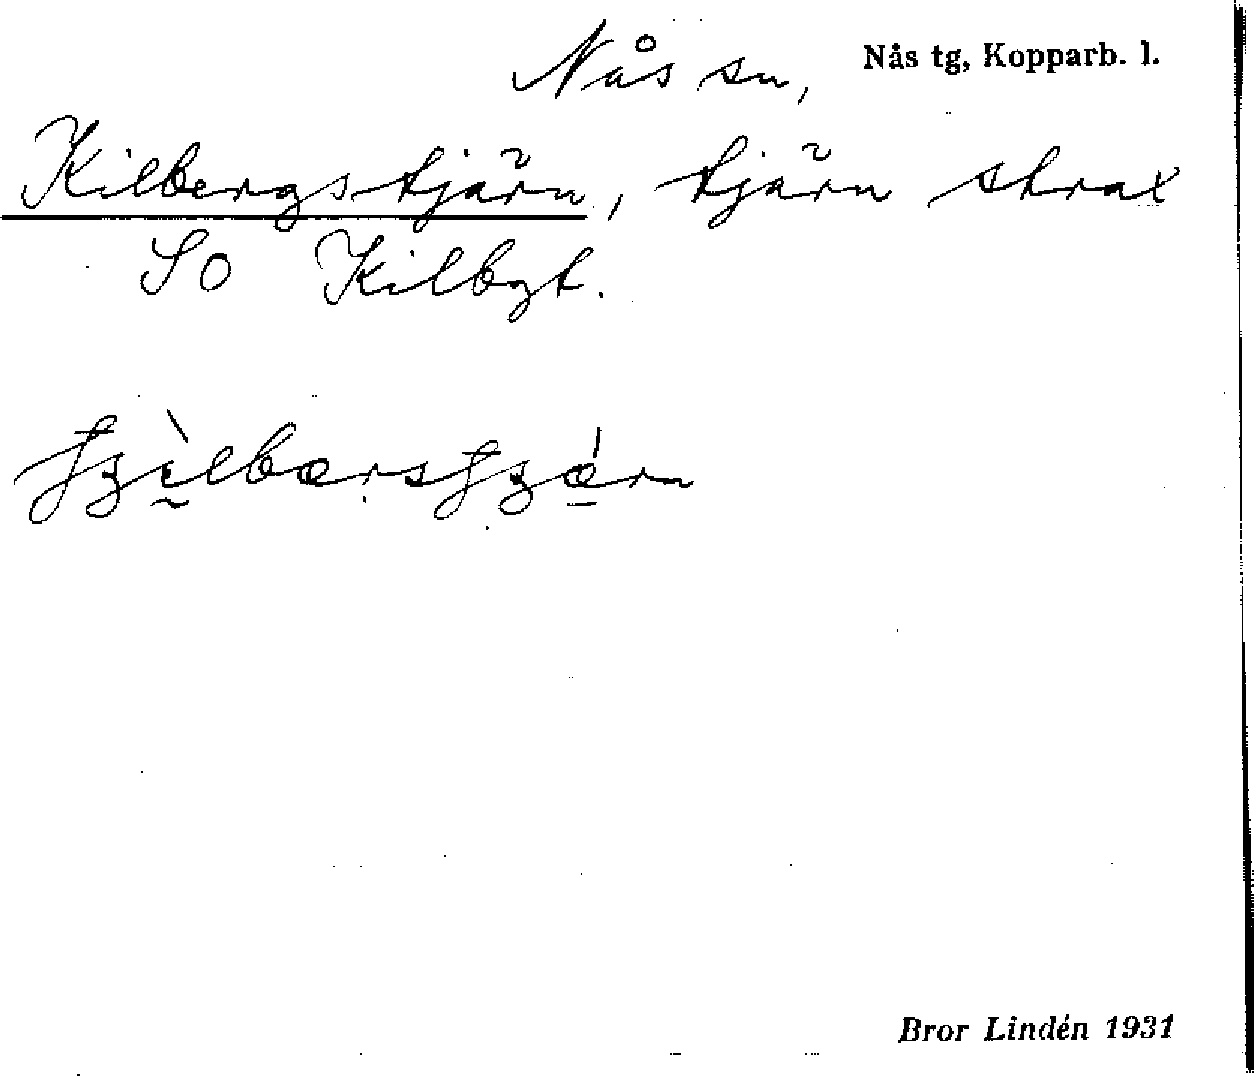 Nås sn, Nås tg, Kopparb. l.
Kilbergstjärn, tjärn strax
SO Kilbgt.
Bror Lindén 1931